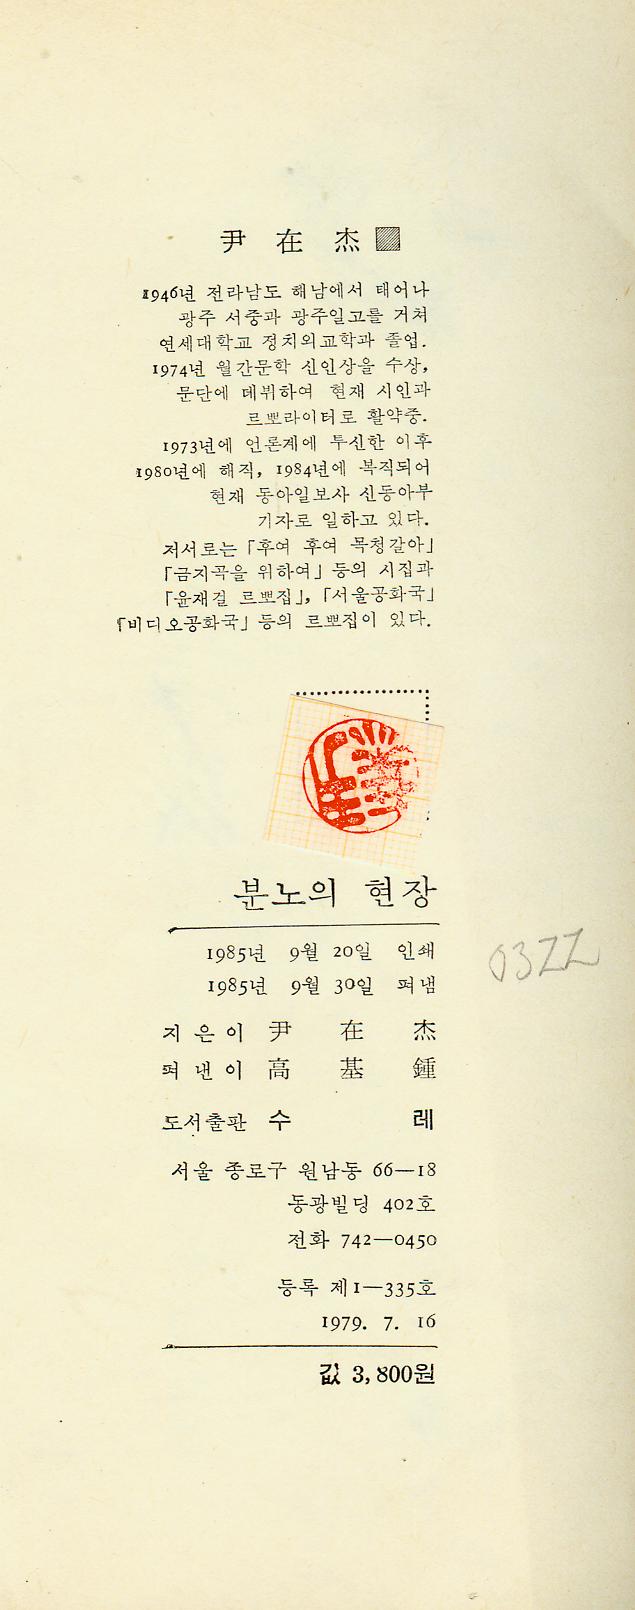 尹 在 杰
1946년 전라남도 해남에서 태어나
광주 서중과 광주일고를 거쳐
연세대학교 정치외교학과 졸업.
1974년 월간문학 신인상을 수상,
문단에 데뷔하여 현재 시인과
르뽀라이터로 활약중.
1973년에 언론계에 투신한 이후
1980년에 해직, 1984년에 복직되어
현재 동아일보사 신동아부
기자로 일하고 있다.
저서로는 「후여 후여 목청갈아」
「금지곡을 위하여」 등의 시집과
「윤재걸 르뽀집」, 「서울공화국」
「비디오공화국」 등의 르뽀집이 있다.
분노의 현장
1985년 9월 20일 인쇄
1985년 9월 30일 펴냄
지은이 尹 在 杰
펴낸이 高 基 鍾
도서출판 수 레
서울 종로구 원남동 66—18
동광빌딩 402호
전화 742—0450
등록 제1—335호
1979. 7. 16
값 3,800원